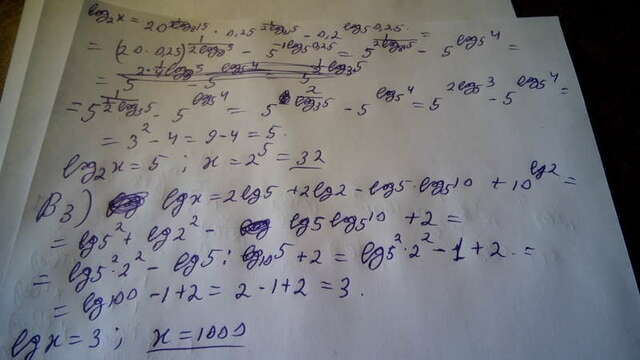 log₂x = 20^(1/(2log₉5)) · 0,25^(1/(2log₉5)) - 0,2^(log₅0,25) =
= (20 · 0,25)^(1/(2log₉5)) - 5^(-1log₅0,25) = 5^(1/(2log₉5)) - 5^(log₅4) =
= 5^(1/(½log₃5)) - 5^(log₅4) = 5^(2/(log₃5)) - 5^(log₅4) = 5^(2log₅3) - 5^(log₅4) =
= 3² - 4 = 9 - 4 = 5.
log₂x = 5 ; x = 2⁵ = 32
B3) lgx = 2lg5 + 2lg2 - lg5 · log₅10 + 10^(lg2) =
= lg5² + lg2² - lg5 log₅10 + 2 =
= lg5² · 2² - lg5 : log₁₀5 + 2 = lg5² · 2² - 1 + 2 =
= lg100 - 1 + 2 = 2 - 1 + 2 = 3.
lgx = 3 ; x = 1000